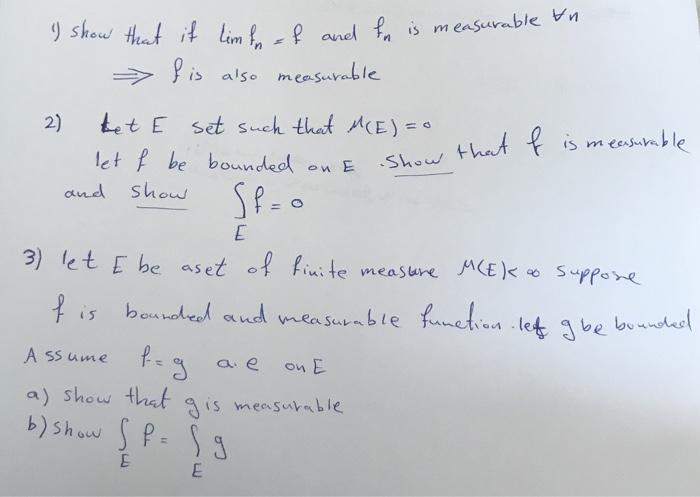 1) show that if lim fn = f and fn is measurable ∀n
⟹ f is also measurable
2) Let E set such that M(E) = 0
let f be bounded on E. Show that f is measurable
and show ∫E f = 0
3) let E be a set of finite measure M(E) < ∞ suppose
f is bounded and measurable function. let g be bounded
Assume f = g a.e on E
a) show that g is measurable
b) show ∫E f = ∫E g